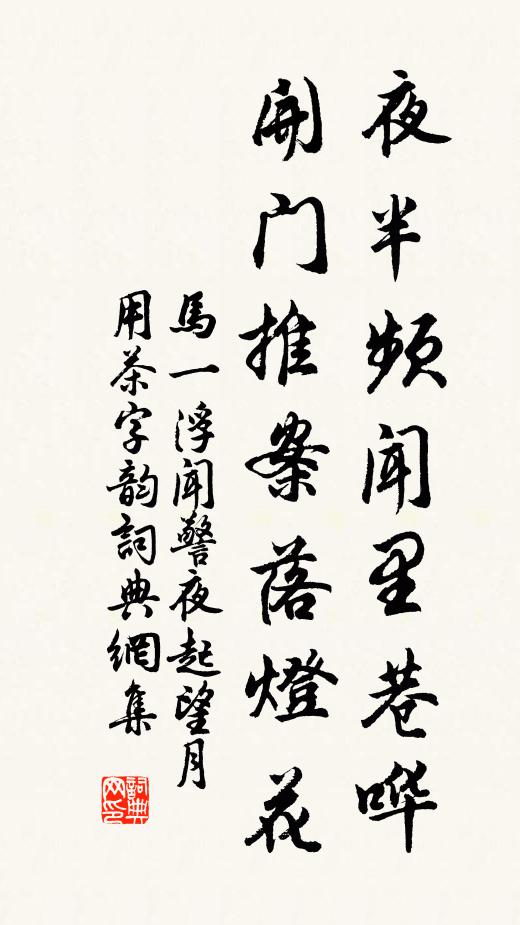 夜半频闻里巷哗
開门推案落燈花
馬一浮闻警夜起望月
用茶字韵詞典網集
詞典网印